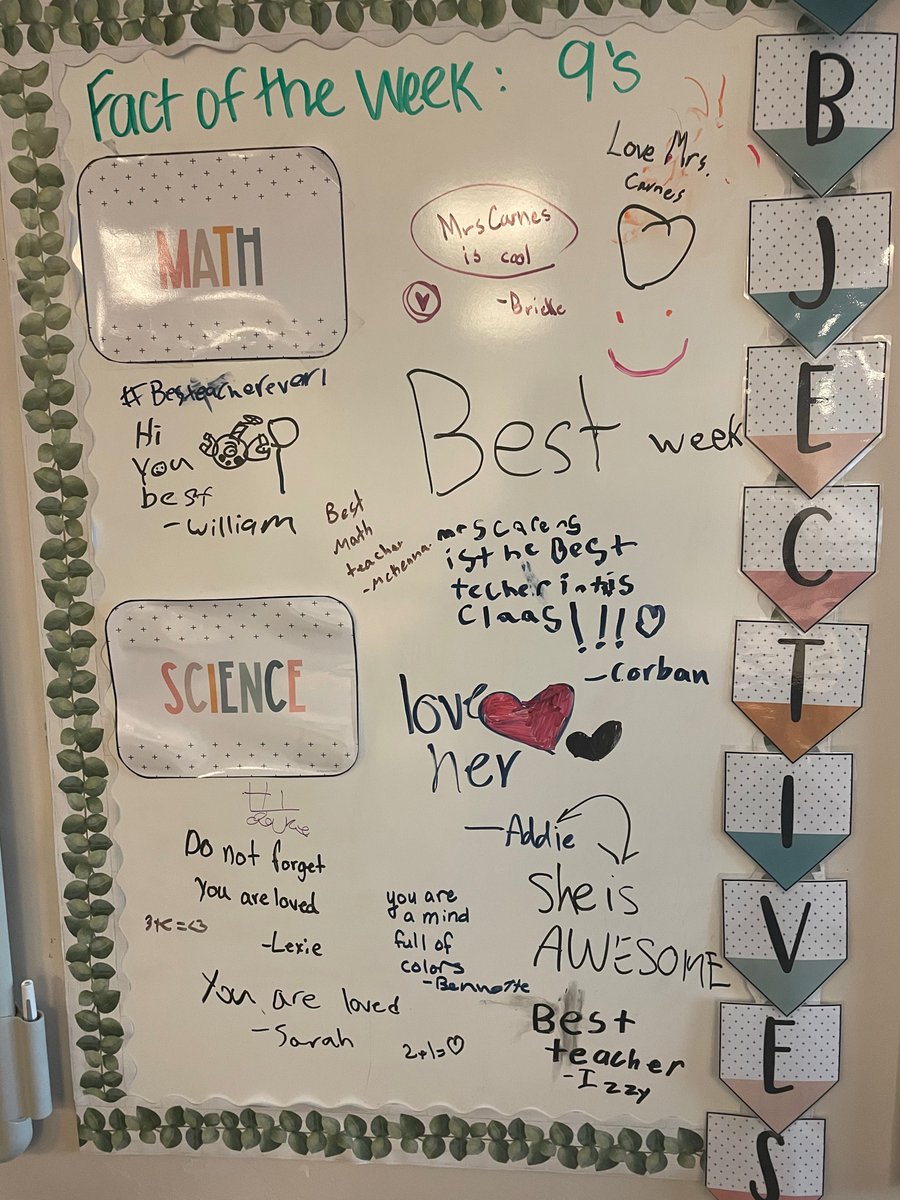 Fact of the Week: 9's
Love Mrs.
Carnes
MATH
Mrs Carnes
is cool
-Brielle
#Bestteacherever1
Hi
You
best
-William
Best week
Best
Math
teacher
-McKenna
mrs carens
isthe Best
techer intis
Claas!!!!
-Corban
SCIENCE
love
her
-Addie
#1
Do not forget
You are loved
-Lexie
you are
a mind
full of
colors
-Bennette
She is
AWESOME
3+c=<3
You are loved
-Sarah
2+1=♡
Best
teacher
-Izzy
B
J
E
C
T
I
V
E
S